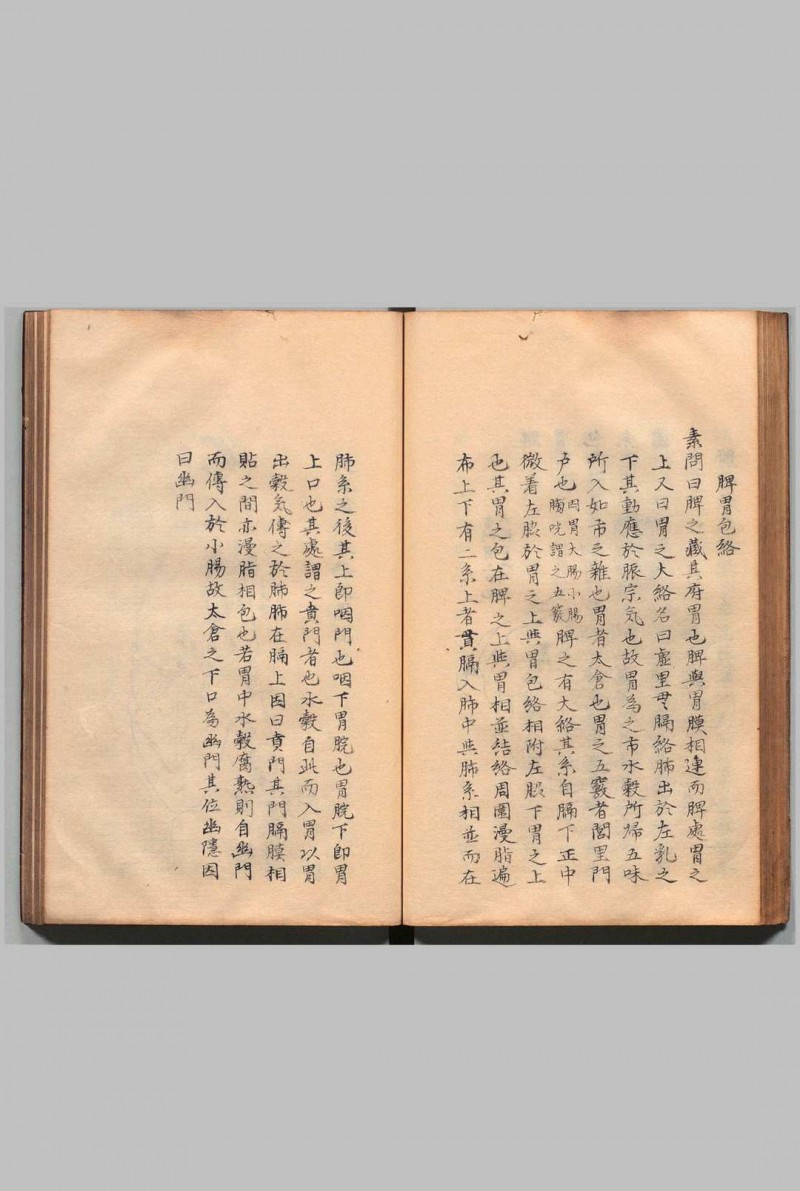 脾胃包絡
素問曰脾之藏其府胃也脾與胃膜相連而脾處胃之
上又曰胃之大絡名曰虛里貫膈絡肺出於左乳之
下其動應於脈宗気也故胃為之市水穀所歸五味
所入如市之雜也胃者太倉也胃之五竅者閭里門
戶也因胃大腸小腸腸咣謂之五竅脾之有大絡其系自膈下正中
微着左脇於胃之上與胃包絡相附左脇下胃之上
也其胃之包在脾之上與胃相並結絡周圍漫脂遍
布上下有二系上者貫膈入肺中與肺系相並而在
肺系之後其上即咽門也咽下胃脘也胃脘下即胃
上口也其處謂之賁門者也水穀自此而入胃以胃
出穀気傳之於肺肺在膈上因曰賁門其門膈膜相
貼之間亦漫脂相包也若胃中水穀腐熟則自幽門
而傳入於小腸故太倉之下口為幽門其位幽隱因
曰幽門